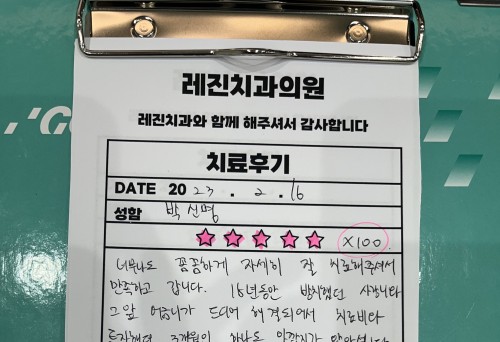 레진치과의원
레진치과와 함께 해주셔서 감사합니다
치료후기
DATE 20 23 . 2 . 16
성함 박신명
X100
너무나도 꼼꼼하게 자세히 잘 치료해주셔서
만족하고 갑니다. 18년동안 방치했던
그 앞 어금니가 드디어 해결되어서 치료비나
3개월이 하나도